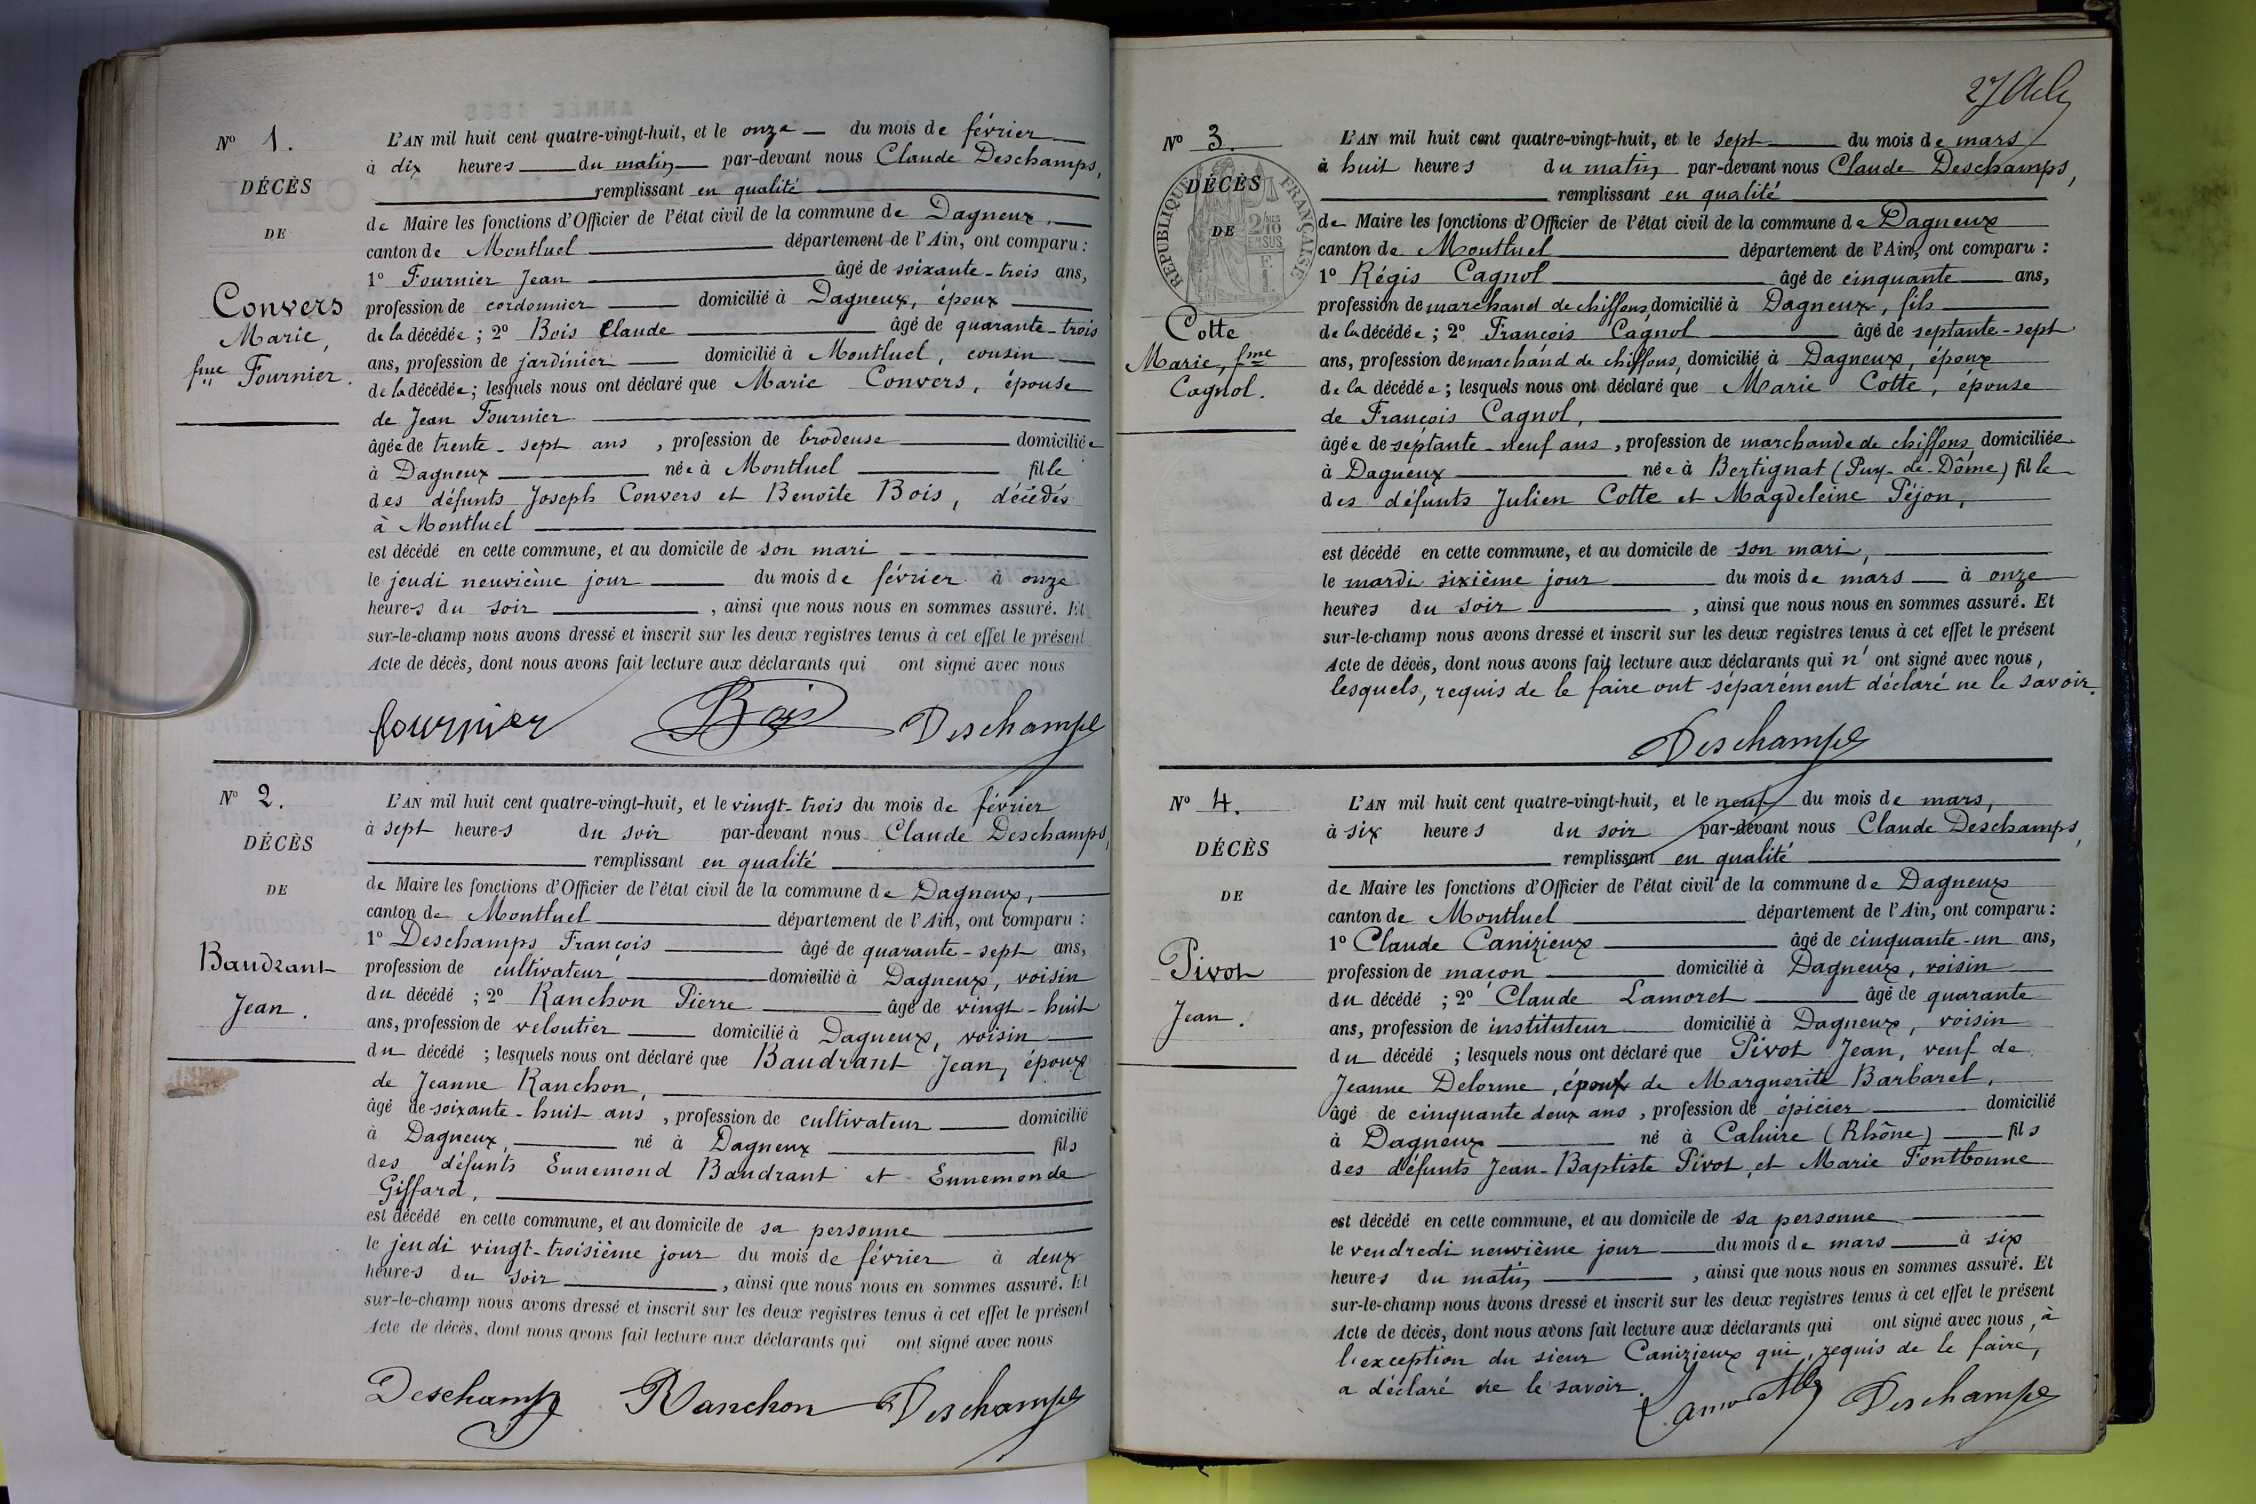 N° 1.
DÉCÈS
DE
Convers
Marie,
fme Fournier.
L'AN mil huit cent quatre-vingt-huit, et le onze du mois de février
à dix heures du matin par-devant nous Claude Deschamps,
remplissant en qualité
de Maire les fonctions d'Officier de l'état civil de la commune de Dagneux,
canton de Montluel département de l'Ain, ont comparu :
1° Fournier Jean âgé de soixante-trois ans,
profession de cordonnier domicilié à Dagneux, époux
de la décédée ; 2° Bois Claude âgé de quarante-trois
ans, profession de jardinier domicilié à Montluel, cousin
de la décédée ; lesquels nous ont déclaré que Marie Convers, épouse
de Jean Fournier
âgée de trente-sept ans, profession de brodeuse domiciliée
à Dagneux née à Montluel fille
des défunts Joseph Convers et Benoîte Bois, décédés
à Montluel
est décédé en cette commune, et au domicile de son mari
le jeudi neuvième jour du mois de février à onze
heures du soir, ainsi que nous nous en sommes assuré. Et
sur-le-champ nous avons dressé et inscrit sur les deux registres tenus à cet effet le présent
Acte de décès, dont nous avons fait lecture aux déclarants qui ont signé avec nous
fournier Bois Deschamps
N° 2.
DÉCÈS
DE
Baudrant
Jean.
L'AN mil huit cent quatre-vingt-huit, et le vingt-trois du mois de février
à sept heures du soir par-devant nous Claude Deschamps,
remplissant en qualité
de Maire les fonctions d'Officier de l'état civil de la commune de Dagneux,
canton de Montluel département de l'Ain, ont comparu :
1° Deschamps François âgé de quarante-sept ans,
profession de cultivateur domicilié à Dagneux, voisin
du décédé ; 2° Ranchon Pierre âgé de vingt-huit
ans, profession de veloutier domicilié à Dagneux, voisin
du décédé ; lesquels nous ont déclaré que Baudrant Jean, époux
de Jeanne Ranchon,
âgé de soixante-huit ans, profession de cultivateur domicilié
à Dagneux, né à Dagneux fils
des défunts Ennemond Baudrant et Ennemonde
Giffard,
est décédé en cette commune, et au domicile de sa personne
le jeudi vingt-troisième jour du mois de février à deux
heures du soir, ainsi que nous nous en sommes assuré. Et
sur-le-champ nous avons dressé et inscrit sur les deux registres tenus à cet effet le présent
Acte de décès, dont nous avons fait lecture aux déclarants qui ont signé avec nous
Deschamps Ranchon Deschamps
27
N° 3.
DÉCÈS
DE
RÉPUBLIQUE FRANÇAISE
Cotte
Marie, fme
Cagnol.
L'AN mil huit cent quatre-vingt-huit, et le sept du mois de mars
à huit heures du matin par-devant nous Claude Deschamps,
remplissant en qualité
de Maire les fonctions d'Officier de l'état civil de la commune de Dagneux
canton de Montluel département de l'Ain, ont comparu :
1° Régis Cagnol âgé de cinquante ans,
profession de marchand de chiffons, domicilié à Dagneux, fils
de la décédée ; 2° François Cagnol âgé de septante-sept
ans, profession de marchand de chiffons, domicilié à Dagneux, époux
de la décédée ; lesquels nous ont déclaré que Marie Cotte, épouse
de François Cagnol,
âgée de septante-neuf ans, profession de marchande de chiffons, domiciliée
à Dagneux née à Bertignat (Puy-de-Dôme) fille
des défunts Julien Cotte et Magdeleine Péjon,
est décédé en cette commune, et au domicile de son mari,
le mardi sixième jour du mois de mars à onze
heures du soir, ainsi que nous nous en sommes assuré. Et
sur-le-champ nous avons dressé et inscrit sur les deux registres tenus à cet effet le présent
Acte de décès, dont nous avons fait lecture aux déclarants qui n'ont signé avec nous,
lesquels, requis de le faire ont séparément déclaré ne le savoir.
Deschamps
N° 4.
DÉCÈS
DE
Pivot
Jean.
L'AN mil huit cent quatre-vingt-huit, et le neuf du mois de mars,
à six heures du soir par-devant nous Claude Deschamps,
remplissant en qualité
de Maire les fonctions d'Officier de l'état civil de la commune de Dagneux
canton de Montluel département de l'Ain, ont comparu :
1° Claude Canizieux âgé de cinquante-un ans,
profession de maçon domicilié à Dagneux, voisin
du décédé ; 2° Claude Lamoret âgé de quarante
ans, profession de instituteur domicilié à Dagneux, voisin
du décédé ; lesquels nous ont déclaré que Pivot Jean, veuf de
Jeanne Delorme, époux de Marguerite Barbaret,
âgé de cinquante deux ans, profession de épicier domicilié
à Dagneux né à Caluire (Rhône) fils
des défunts Jean-Baptiste Pivot, et Marie Fontbonne
est décédé en cette commune, et au domicile de sa personne
le vendredi neuvième jour du mois de mars à six
heures du matin, ainsi que nous nous en sommes assuré. Et
sur-le-champ nous avons dressé et inscrit sur les deux registres tenus à cet effet le présent
Acte de décès, dont nous avons fait lecture aux déclarants qui ont signé avec nous, à
l'exception du sieur Canizieux qui, requis de le faire,
a déclaré ne le savoir.
Deschamps